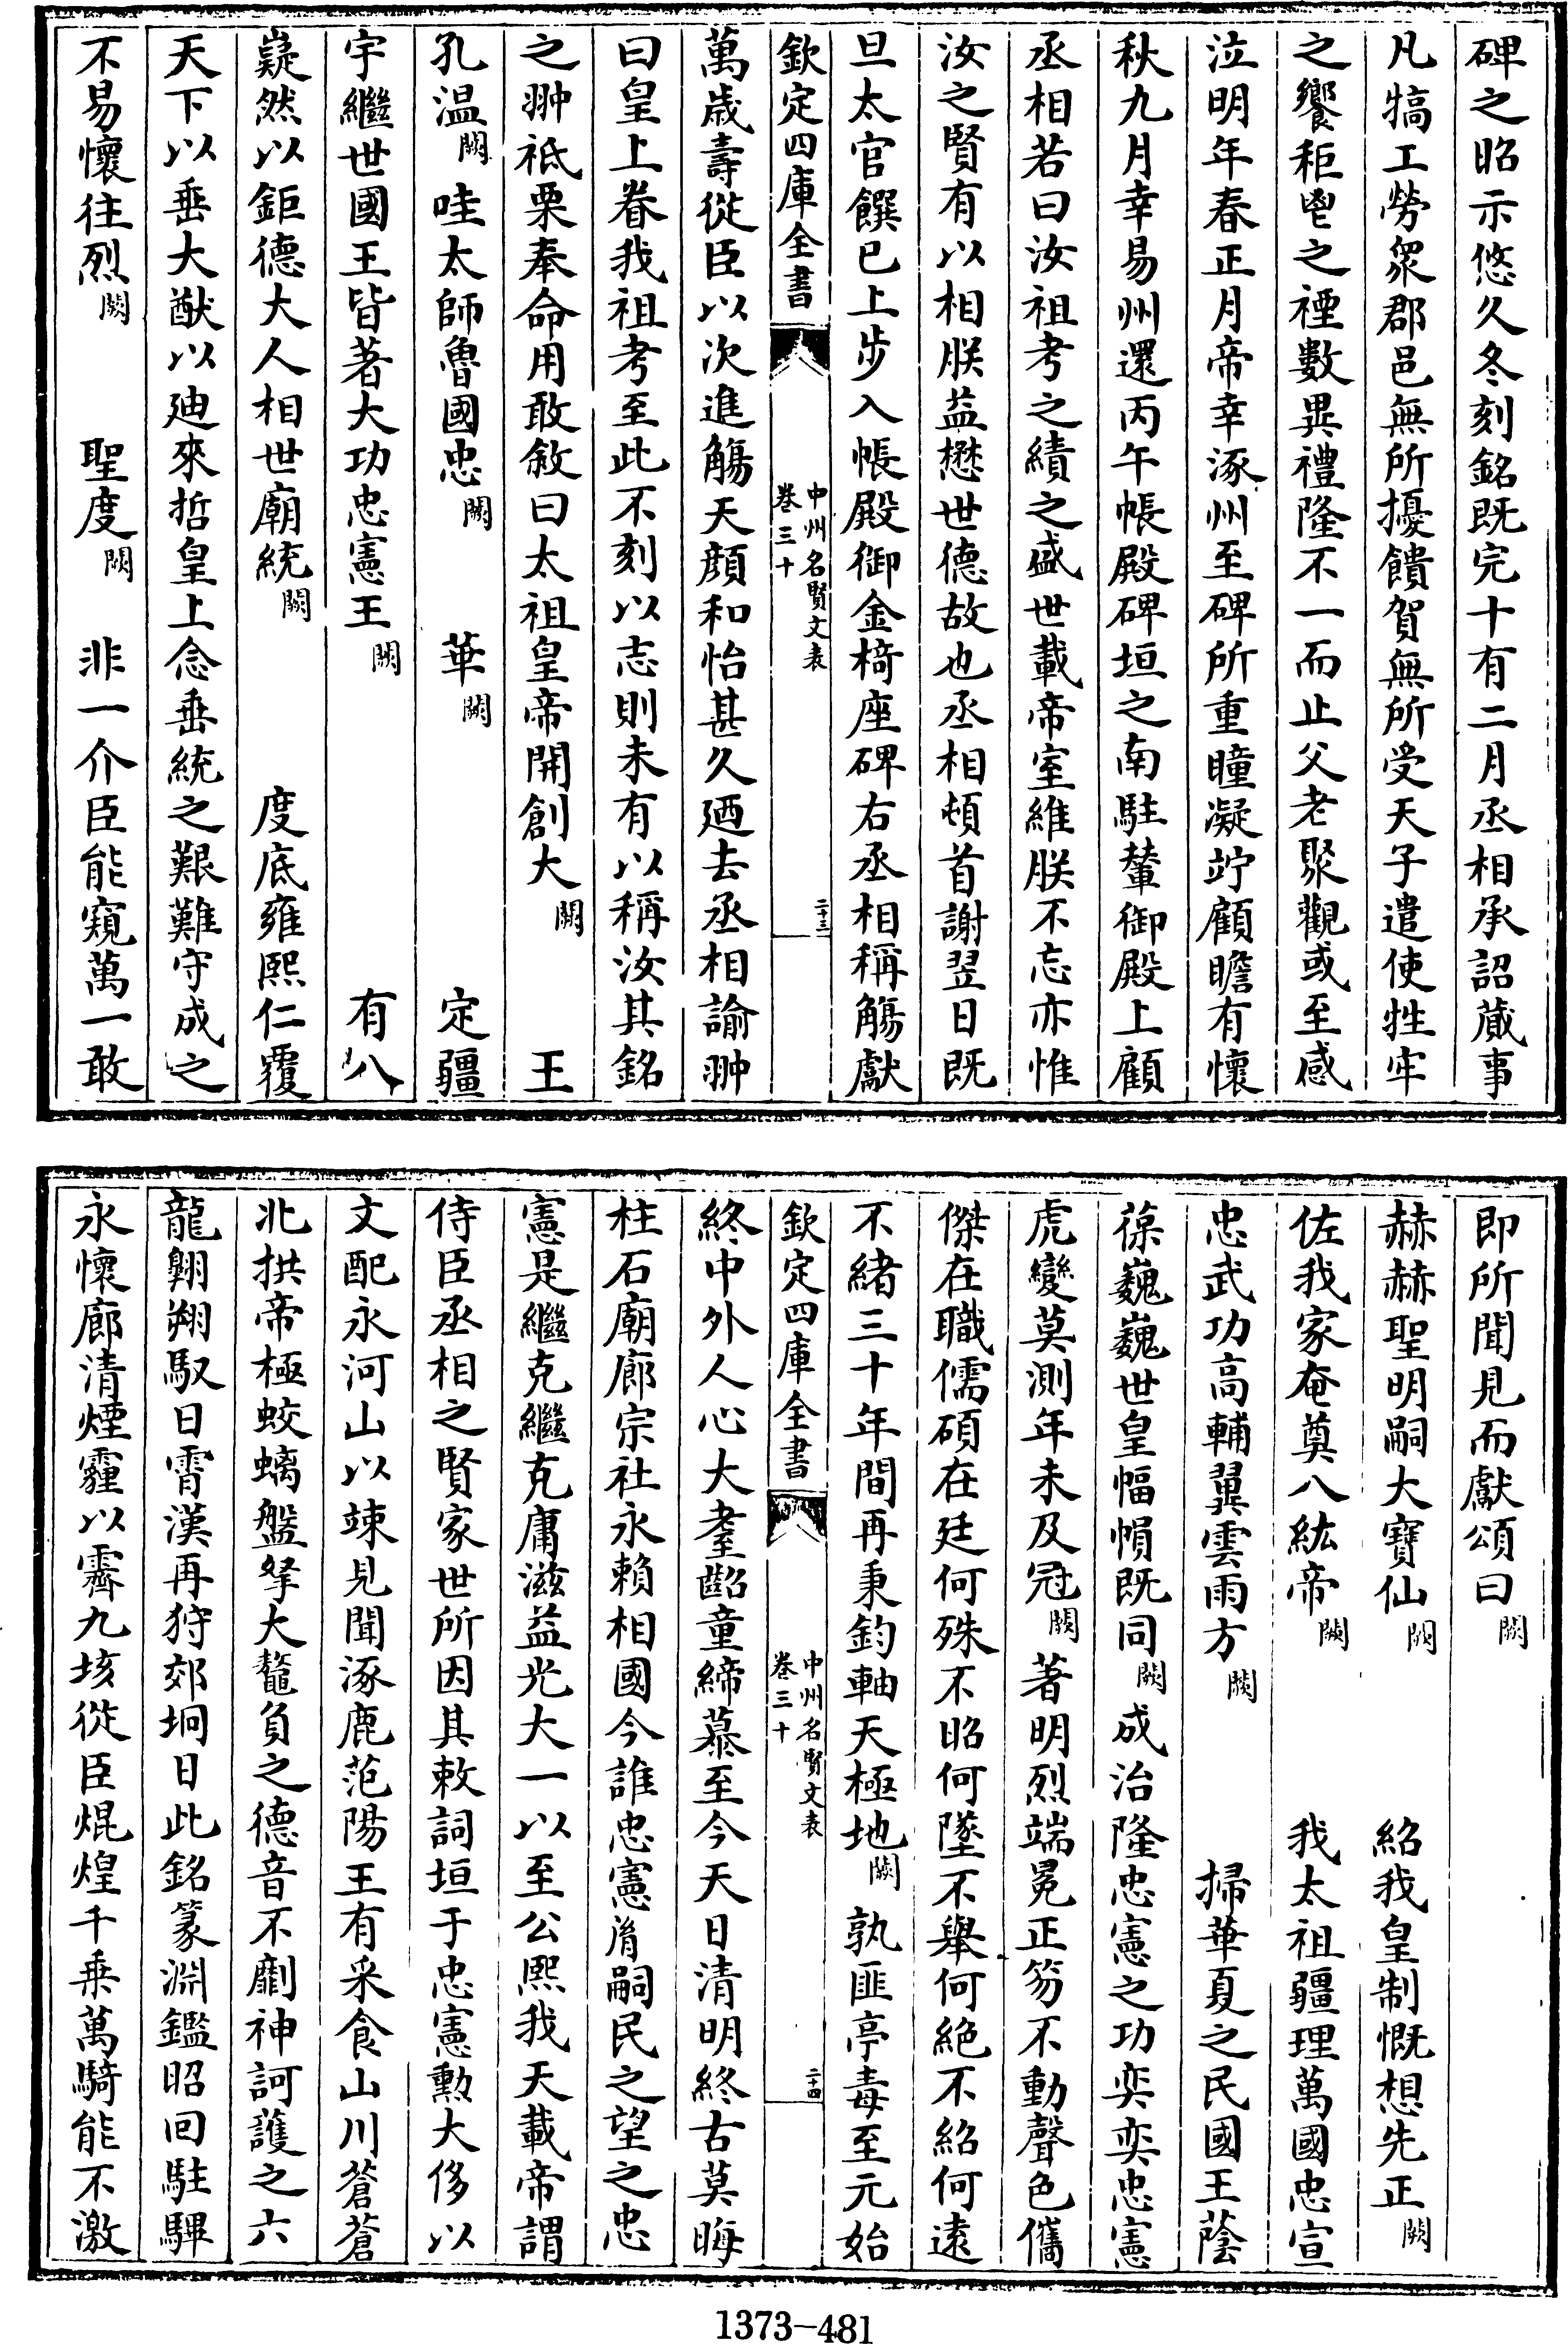 碑之昭示悠久冬刻銘既完十有二月丞相承詔蕆事
凡犒工勞衆郡邑無所擾饋賀無所受天子遣使牲牢
之饗秬鬯之禋數異禮隆不一而止父老聚觀或至感
泣明年春正月帝幸涿州至碑所重瞳凝竚顧瞻有懷
秋九月幸易州還丙午帳殿碑垣之南駐輦御殿上顧
丞相若曰汝祖考之績之盛世載帝室維朕不忘亦惟
汝之賢有以相朕益懋世德故也丞相頓首謝翌日既
旦太官饌已上步入帳殿御金椅座碑右丞相稱觴獻
欽定四庫全書
中州名賢文表
卷三十
二十三
萬歲壽從臣以次進觴天顏和怡甚久廼去丞相諭翀
曰皇上眷我祖考至此不刻以志則未有以稱汝其銘
之翀祗栗奉命用敢敘曰太祖皇帝開創大闕 王
孔温闕 哇太師魯國忠闕 華闕 定疆
宇繼世國王皆著大功忠憲王闕 有八
嶷然以鉅德大人相世廟統闕 度底雍熙仁覆
天下以垂大猷以廸來哲皇上念垂統之艱難守成之
不易懷往烈闕 聖度闕 非一介臣能窺萬一敢
即所聞見而獻頌曰闕
赫赫聖明嗣大寶仙闕 紹我皇制慨想先正闕
佐我家奄奠八紘帝闕 我太祖疆理萬國忠宣
忠武功高輔翼雲雨方闕 掃華夏之民國王蔭
葆巍巍世皇幅幀既同闕 成治隆忠憲之功奕奕忠憲
虎變莫測年未及冠闕 著明烈端冕正笏不動聲色儁
傑在職儒碩在廷何殊不昭何墜不舉何絶不紹何遠
不緒三十年間再秉鈞軸天極地闕 孰匪亭毒至元始
欽定四庫全書
中州名賢文表
卷三十
二十四
終中外人心大耋齠童締慕至今天日清明終古莫晦
柱石廟廊宗社永賴相國今誰忠憲胤嗣民之望之忠
憲是繼克繼克庸滋益光大一以至公熙我天載帝謂
侍臣丞相之賢家世所因其敕詞垣于忠憲勲大侈以
文配永河山以竦見聞涿鹿范陽王有采食山川蒼蒼
北拱帝極蛟螭盤拏大鼇負之德音不劘神訶護之六
龍翺翔馭日霄漢再狩郊坰日此銘篆淵鑑昭回駐驆
永懷廊清煙霾以霽九垓從臣焜煌千乗萬騎能不激
1373-481